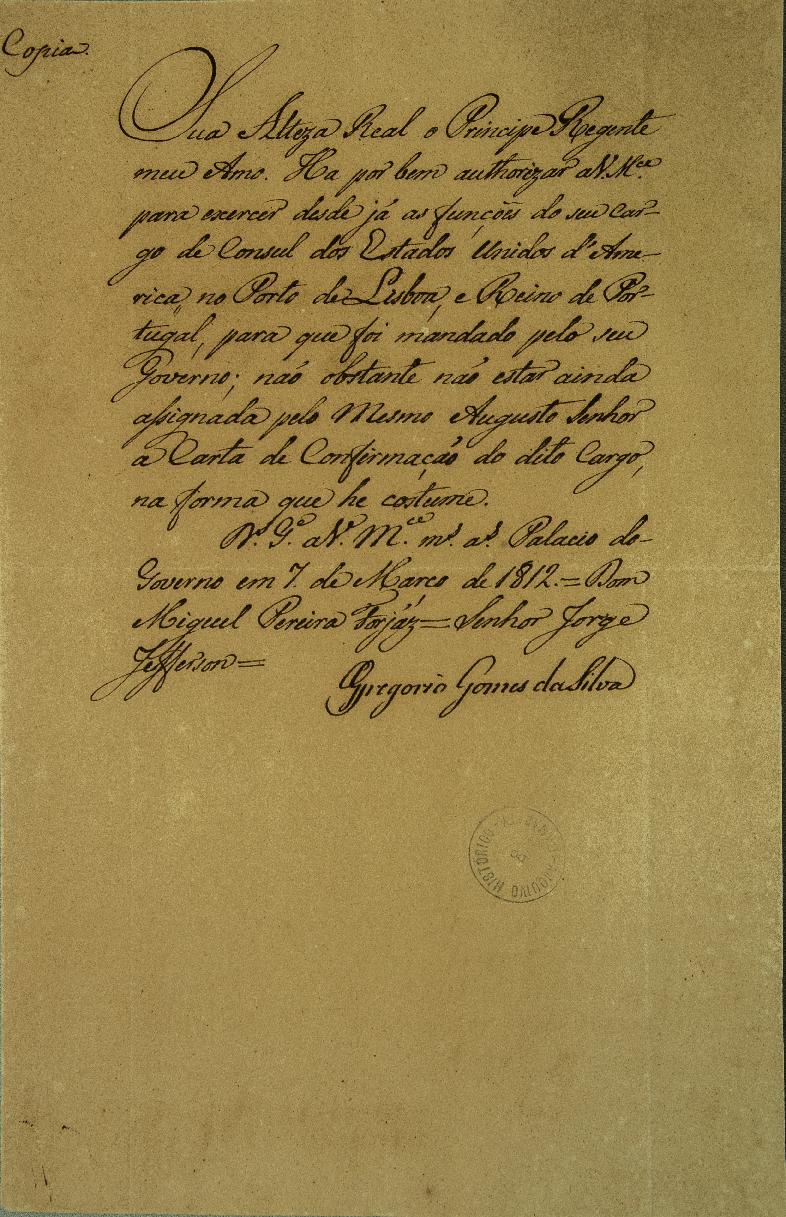 Copia.
Sua Alteza Real o Principe Regente
meu Amo. Ha por bem authorizar a V. M.ce
para exercer desde já as funcões do seu car-
go de Consul dos Estados Unidos d'Ame-
rica, no Porto de Lisboa, e Reino de Por-
tugal, para que foi mandado pelo seu
Governo; não obstante não estar ainda
assignada pelo Mesmo Augusto Senhor
a Carta de Confirmação do dito Cargo,
na forma que he costume.
D.s G.e a V. M.ce m.s a.s Palacio do
Governo em 7. de Março de 1812. = Dom
Miguel Pereira Forjáz = Senhor Jorge
Jefferson =
Gregorio Gomes da Silva
ARQUIVO HISTÓRICO